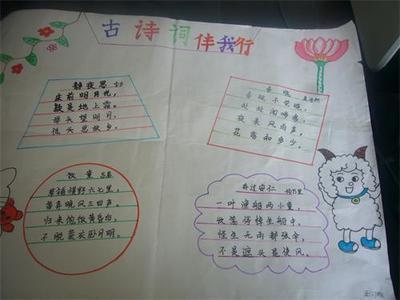 古诗词伴我行
静夜思
床前明月光，
疑是地上霜。
举头望明月，
低头思故乡。
春晓 孟浩然
春眠不觉晓，
处处闻啼鸟。
夜来风雨声，
花落知多少。
牧童 吕岩
草铺横野六七里，
笛弄晚风三四声。
归来饱饭黄昏后，
不脱蓑衣卧月明。
舟过安仁 杨万里
一叶渔船两小童，
收篙停棹坐船中。
怪生无雨都张伞，
不是遮头是使风。